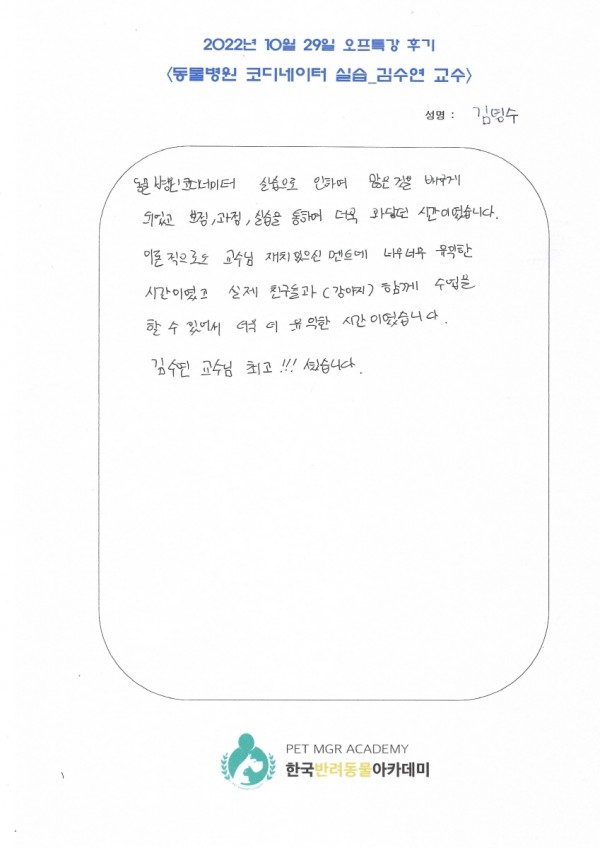 2022년 10월 29일 오프특강 후기
<동물병원 코디네이터 실습_김수연 교수>
성명 : 김명수
동물병원코디네이터 실습으로 인하여 많은것을 배우게
되었고 보정, 과정, 실습을 통하여 더욱 와닿던 시간이였습니다.
이론적으로도 교수님 재치있으신 멘트에 너무너무 유익한
시간이였고 실제 친구들과 (강아지) 함께 수업을
할 수 있어서 더욱 이 유익한 시간이였습니다.
김수연 교수님 최고!!! 였습니다.
PET MGR ACADEMY
한국반려동물아카데미